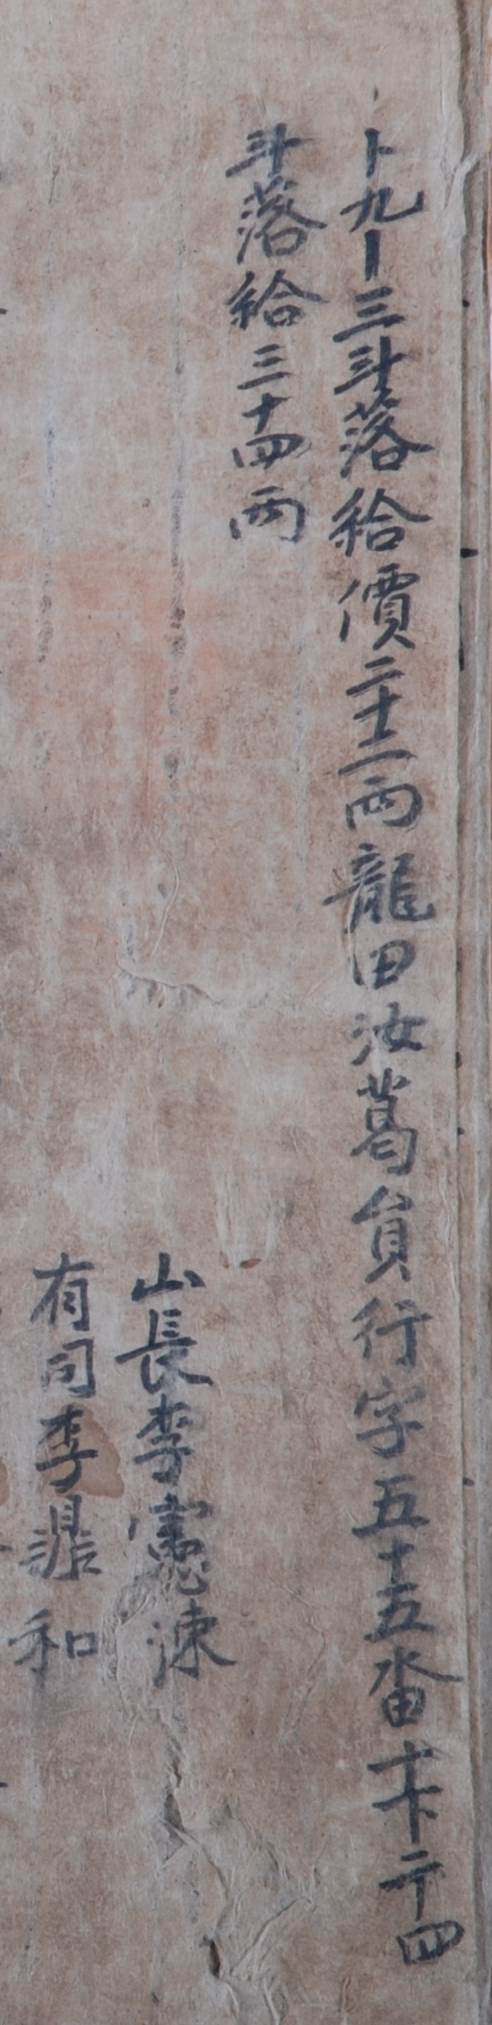 卜九丨三斗落給價二十二兩龍田汝葛員行字五十五畓十卜二丨四
斗落給三十四兩
山長李憲涑
有司李鼎和